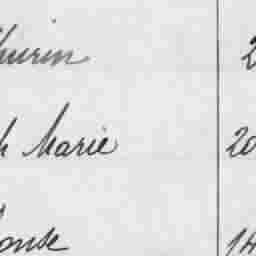 hurin 2
h Marie 20
onse 14